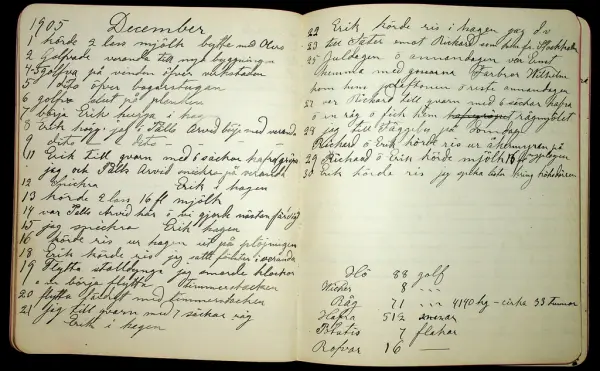 1905 December
1 körde 2 lass mjölk bytta med Olers
2 Golfvade veranda till nya byggningen
4-5 golfva på venden öfver verkstaden
5 dito öfver bagarstugan
6 golfva
7 börja Erik hugga i hag
8 Erik högg. jag i Pålls Arvid börje med veranda
9 dito — dito — — — —
11 Erik till qvarn med 6 säckar hafra
jag och Pålls Arvid snickra på veranda
12 Snickra Erik i hagen
13 körde 2 lass 16 ft mjölk
14 var Pålls Arvid här i
15 jag snickra Erik hagen
16 körde ris ur hagen ut på plöjningen
18 Erik körde ris jag satte fönster i veranda
19 Flytta stalldynga jag smorde klockor
o de börja flytta timmerstacken
20 flytta färdigt med timmerstacken
21 jag till qvarn med 7 säckar råg
Erik i hagen
22 Erik körde ris i hagen jag
23 till Säter emot Rickard som kom fr. Stockholm
25 Juldagen o anmandagen var Ernst
hemma med gossarna Farbror Wilhelm
kom hem o reste annandagen
27 var Rickard till qvarn med 6 säckar hafra
o en råg o fick hem rågmjölet
28 jag till Söndag
Rickard o Erik körde ris ur åkermyran på
29 Rickard o Erik körde mjölk 16 ft
30 Erik körde ris jag spika lister kring
Hö 88 golf
8 — . . .
Råg 71 — . . . 4140 kg – cirka 33 tunnor
Hafra 512 snesar
Potatis 7 flakar
Rofvor 16 —